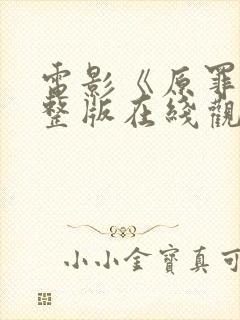 電影《原罪
整版在綫觀
小小金寶真可